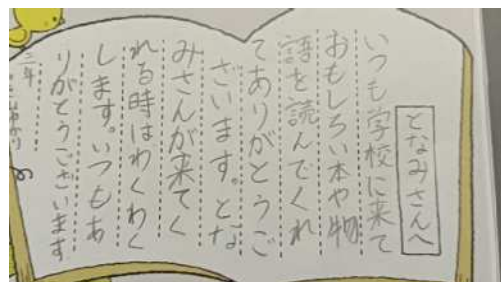 となみさんへ
いつも学校に来て
おもしろい本や物
語を読んでくれ
てありがとうご
ざいます。とな
みさんが来てく
れる時はわくわく
します。いつもあ
りがとうございます
三年